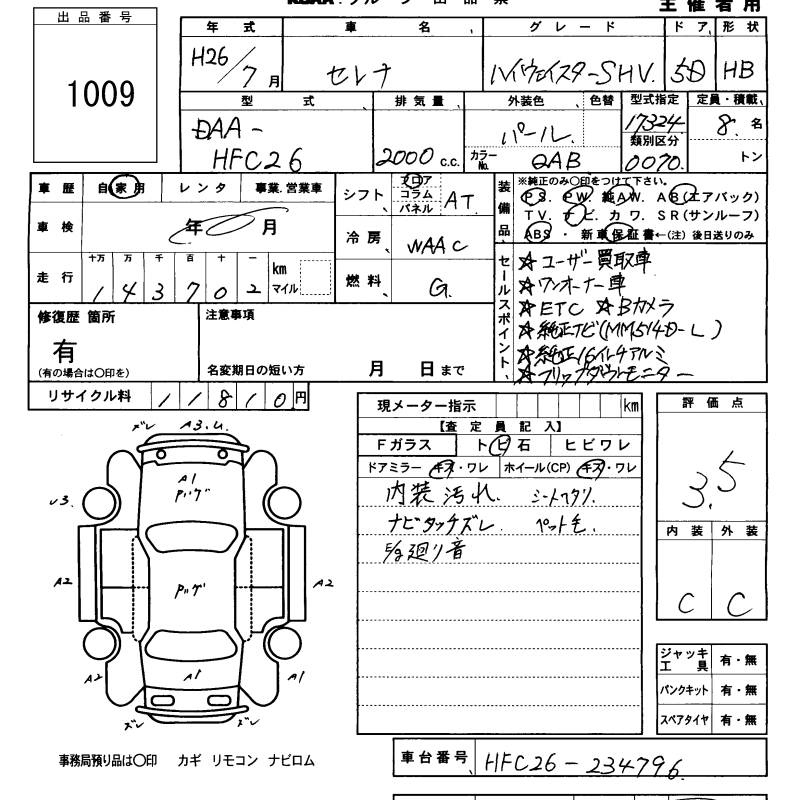 主催者用
出品番号
1009
年式 車名 グレード ドア 形状
H26/7月 セレナ ハイウェイスターSHV. 5D HB
型式 排気量 外装色 色替 型式指定 定員・積載
DAA-HFC26 2000c.c. パール 17324 8名
類別区分
カラーNo. QAB 0070 トン
車歴 自家用 レンタ 事業.営業車
シフト フロア コラム パネル AT
装備品 ※純正のみ○印をつけて下さい。
PS. PW. 純AW. AB(エアバック)
TV. ナビ. カワ. SR(サンルーフ)
ABS ・ 新車保証書←(注) 後日送りのみ
車検 年 月
冷房 WAAC
走行 十万 万 千 百 十 一
143702 km マイル
燃料 G.
セールスポイント
☆ユーザー買取車
☆ワンオーナー車
☆ETC ☆Bカメラ
☆純正ナビ(MM514D-L)
☆純正16インチアルミ
☆フリップダウンモニター
修復歴 箇所
有
(有の場合は○印を)
注意事項
名変期日の短い方 月 日まで
リサイクル料 11810円
現メーター指示 km
【査定員記入】
Fガラス トビ石 ヒビワレ
ドアミラー キズ・ワレ ホイール(CP) キズ・ワレ
内装汚れ. シートヘタリ.
ナビタッチズレ. ペット毛.
廻り音
評価点
3.5
内装 外装
C C
ズレ A3.U.
A1
Pッゲ
U3.
A2 Pッゲ A2
A2 A1 A1
ズレ ズレ
ジャッキ工具 有・無
パンクキット 有・無
スペアタイヤ 有・無
事務局預り品は○印 カギ リモコン ナビロム
車台番号 HFC26-234796